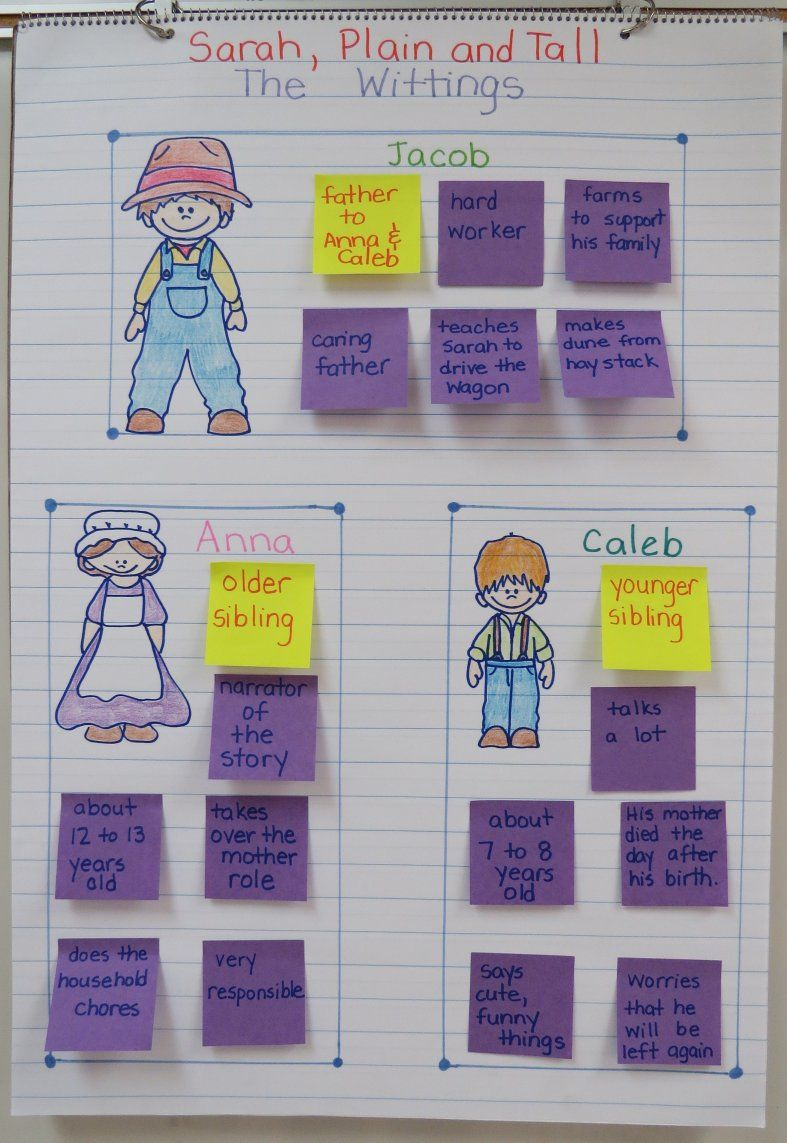 Sarah, Plain and Tall
The Wittings
Jacob
father
to
Anna &
Caleb
hard
worker
farms
to support
his family
caring
father
teaches
Sarah to
drive the
wagon
makes
dune from
hay stack
Anna
older
sibling
narrator
of
the
story
about
12 to 13
years
old
takes
over the
mother
role
does the
household
chores
very
responsible
Caleb
younger
sibling
talks
a lot
about
7 to 8
years
old
His mother
died the
day after
his birth.
Says
cute,
funny
things
Worries
that he
will be
left again